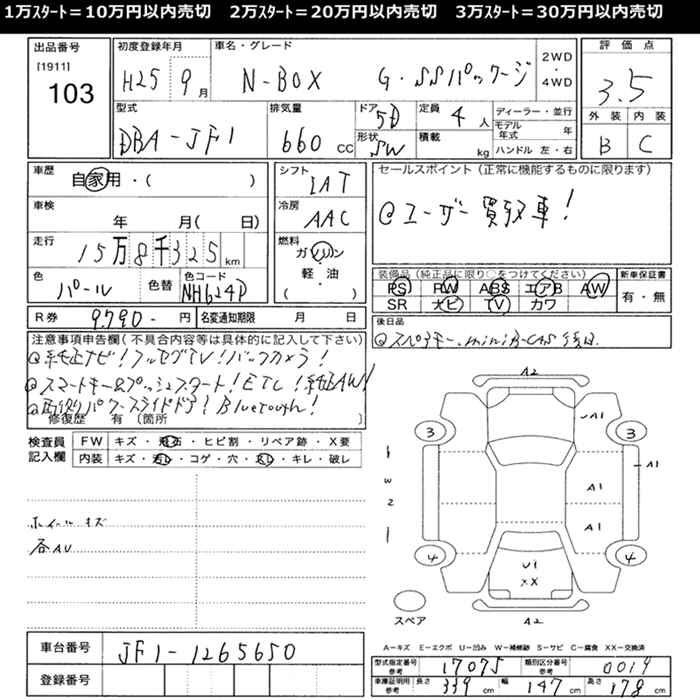 1万ｽﾀｰﾄ＝10万円以内売切　2万ｽﾀｰﾄ＝20万円以内売切　3万ｽﾀｰﾄ＝30万円以内売切
出品番号
[1911]
103
初度登録年月
H25 9月
車名・グレード
N-BOX G・SSパッケージ
2WD
・
4WD
評価点
3.5
外装 内装
B C
型式
DBA-JF1
排気量
660 CC
ドア
5D
形状
SW
定員
4人
積載
kg
ディーラー・並行
モデル年式 年
ハンドル 左・右
車歴
自家用・( )
車検
年 月( 日)
走行
15万8千325km
色
パール
色替
色コード
NH624P
シフト
IAT
冷房
AAC
燃料
ガソリン
軽・油
( )
セールスポイント（正常に機能するものに限ります）
@ユーザー買取車！
装備品(純正品に限り○をつけてください)
PS PW ABS エアB AW
SR ナビ TV カワ
新車保証書
有・無
R券 9,790- 円
名変通知期限 月 日
後日品
@スペアキー、miniB-CAS後日
注意事項申告欄(不具合内容等は具体的に記入して下さい)
@純正ナビ！フルセグTV！バックカメラ！
@スマートキー&プッシュスタート！ETC！純正AW！
@両側パワースライドドア！Bluetooth！
修復歴 有 〔箇所 〕
検査員
記入欄
FW キズ・飛石・ヒビ割・リペア跡・X要
内装 キズ・汚レ・コゲ・穴・スレ・キレ・破レ
ホイールキズ
各AU
A2
A1
3 3
A1
W
2
A1
A1
4 4
U1
XX
スペア
A2
車台番号 JF1-1265650
登録番号
A－キズ E－エクボ U－凹み W－補修跡 S－サビ C－腐食 XX－交換済
型式指定番号
参考
17075
類別区分番号
参考
0019
車庫証明用
参考
長さ 339 cm 幅 147 cm 高さ 178 cm